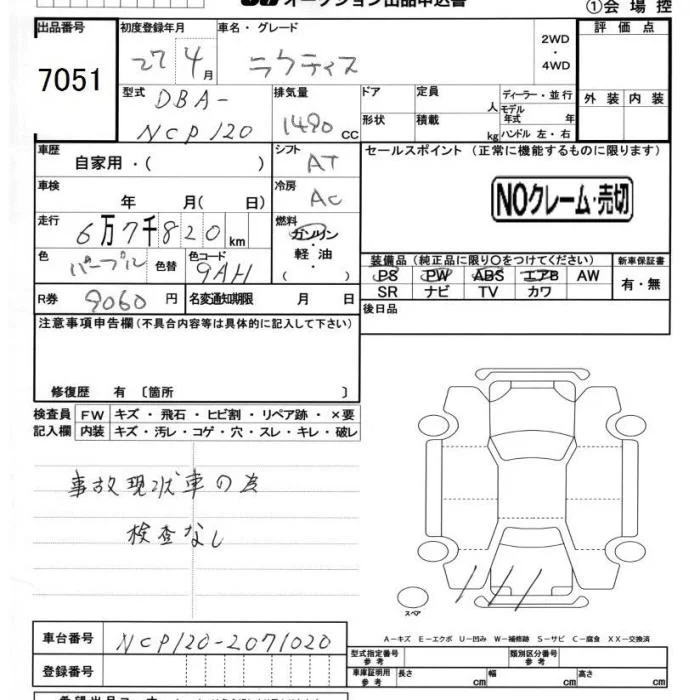 オークション出品申込書
①会場控
出品番号 初度登録年月 車名・グレード 2WD ・ 4WD 評価点
7051 27 4月 ラクティス
外装 内装
型式 DBA- NCP120
排気量 1490 cc
ドア 定員 人 ディーラー・並行
形状 積載 kg モデル年式 年
ハンドル 左・右
車歴 自家用・( )
シフト AT
セールスポイント (正常に機能するものに限ります)
車検 年 月( 日)
冷房 AC
NOクレーム・売切
走行 6万7千820km
燃料 ガソリン・軽油・( )
色 パープル 色替 色コード 9AH
装備品(純正品に限り○をつけてください) 新車保証書
PS PW ABS エアB AW 有・無
SR ナビ TV カワ
R券 9060円 名変通知期限 月 日
後日品
注意事項申告欄(不具合内容等は具体的に記入して下さい)
修復歴 有 〔箇所 〕
検査員 FW キズ・飛石・ヒビ割・リペア跡・×要
記入欄 内装 キズ・汚レ・コゲ・穴・スレ・キレ・破レ
事故現状車の為
検査なし
スペア
A―キズ E―エクボ U―凹み W―補修跡 S―サビ C―腐食 XX―交換済
車台番号 NCP120-2071020
型式指定番号 参考 類別区分番号 参考
登録番号
車庫証明用 参考 長さ cm 幅 cm 高さ cm